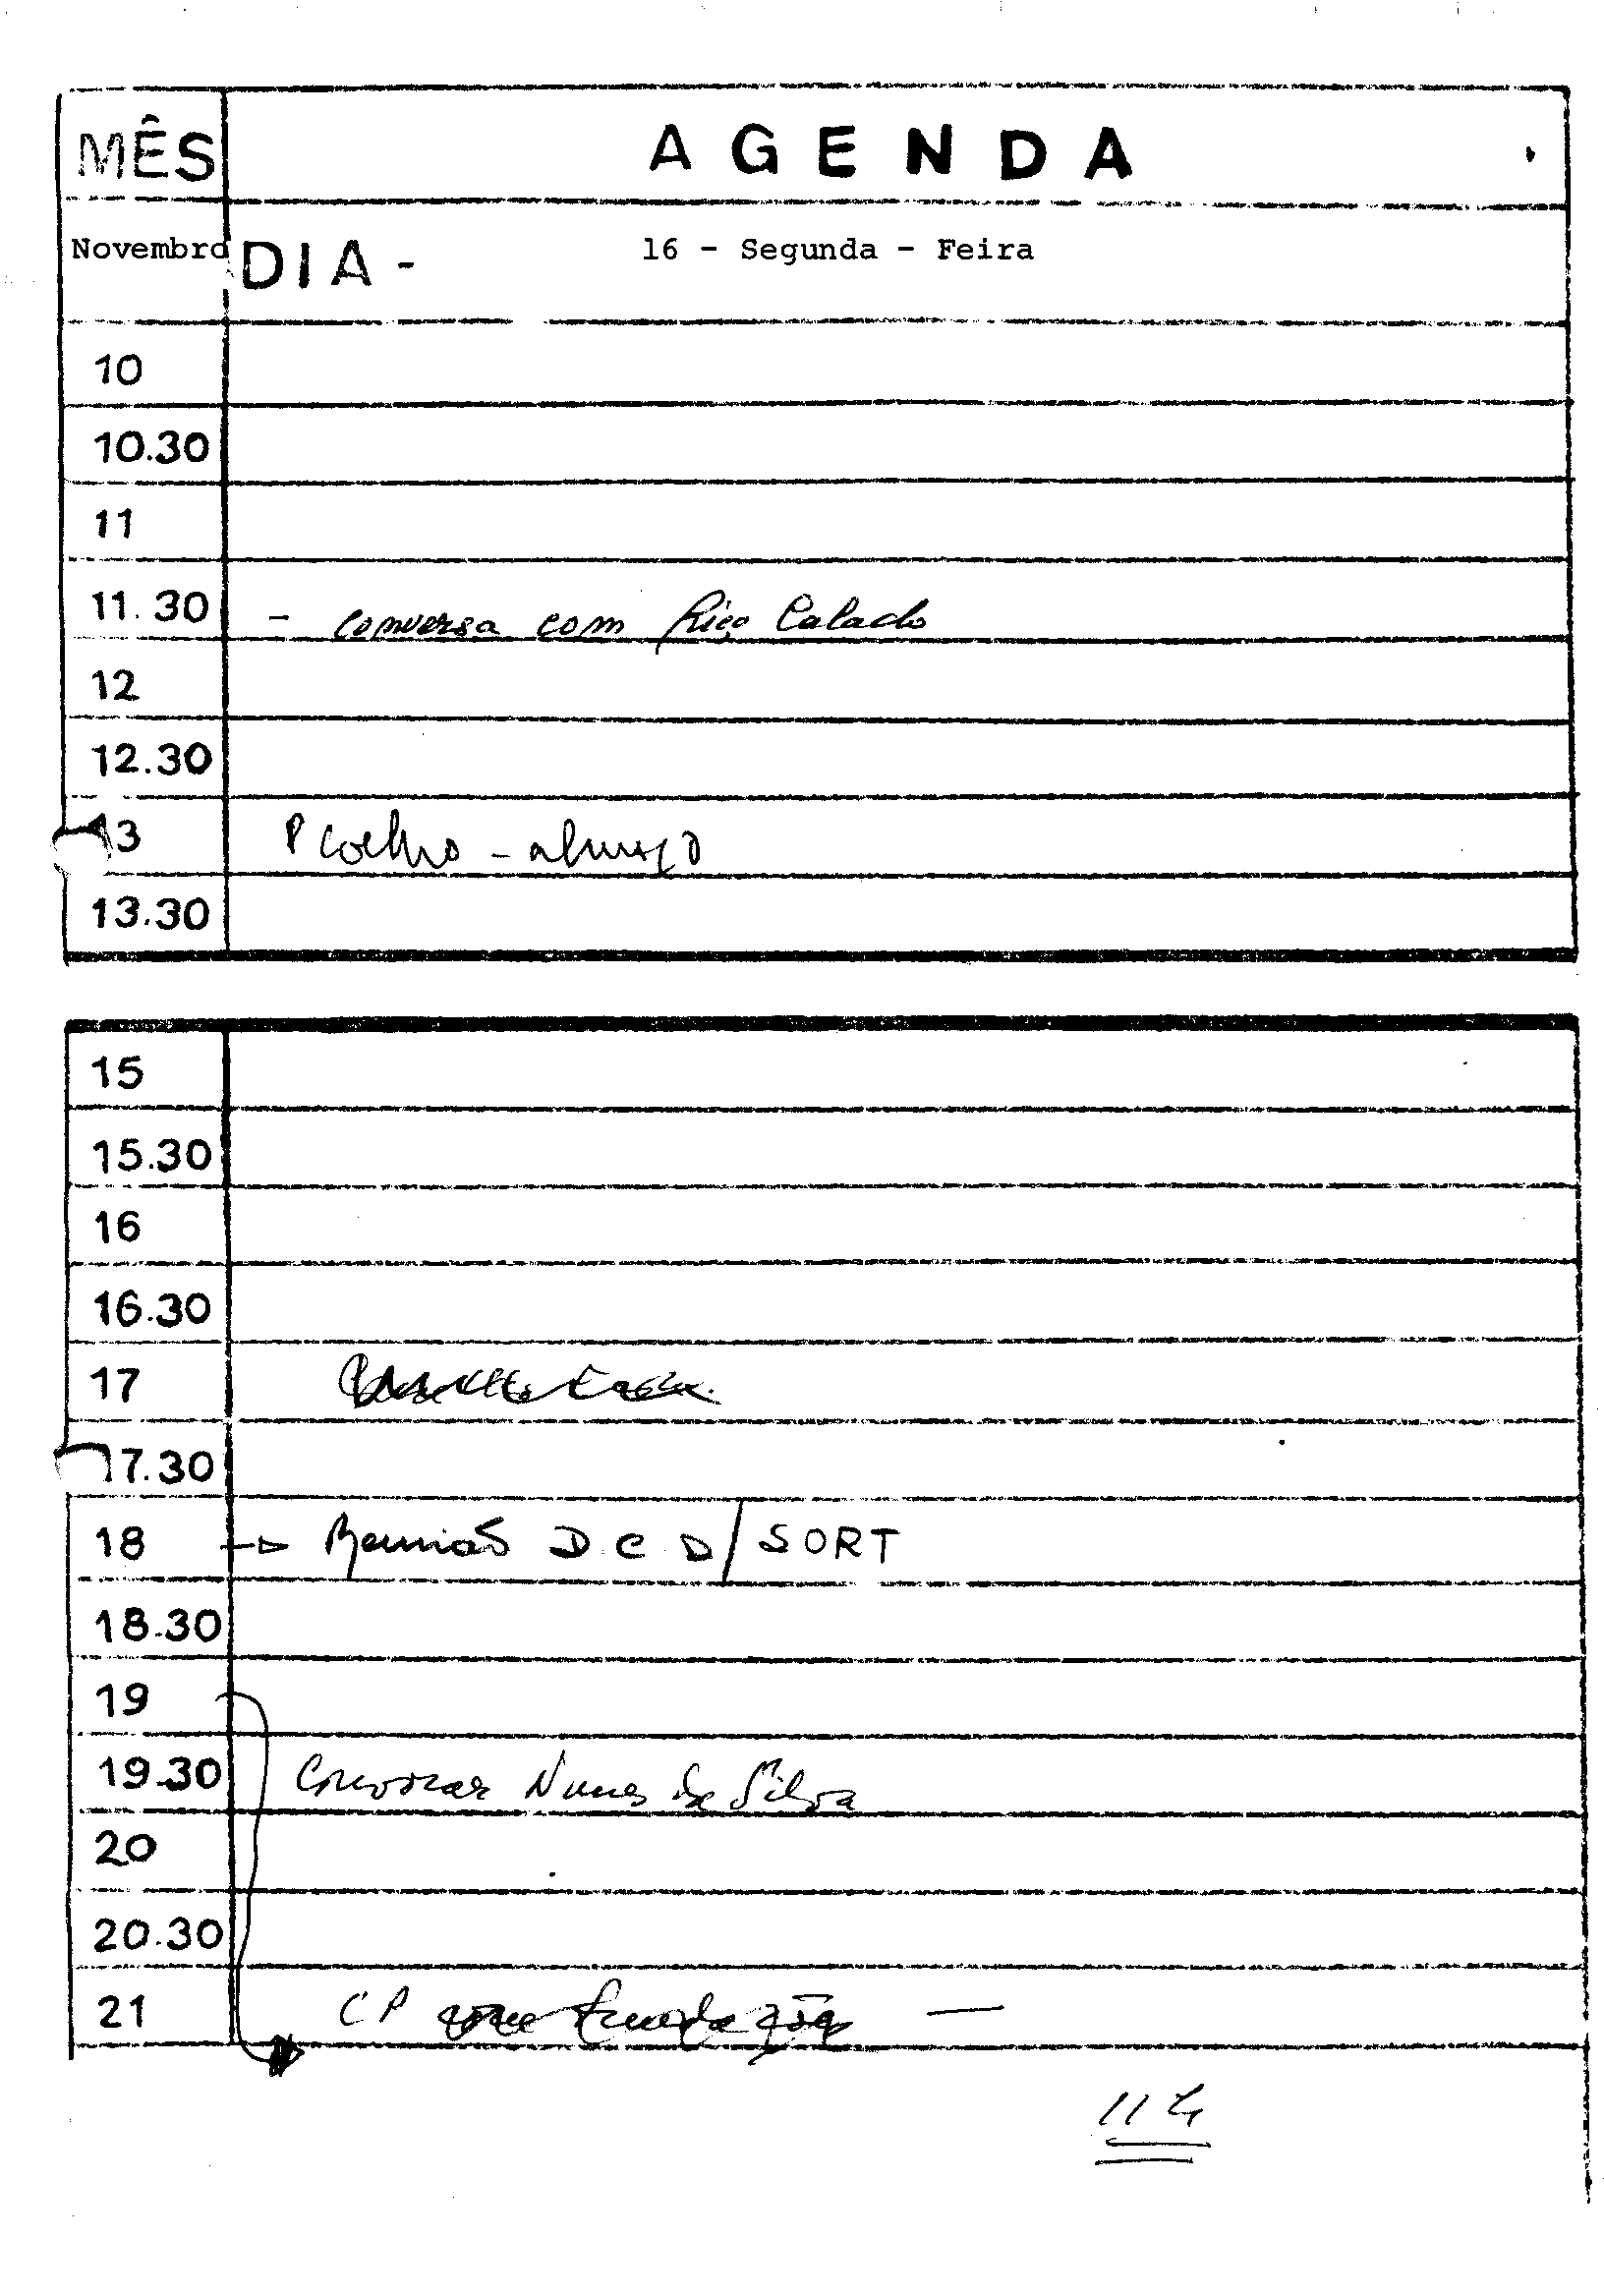 MÊS AGENDA
Novembro DIA - 16 - Segunda - Feira
10
10.30
11
11.30 - conversa com Rico Calado
12
12.30
13 P Coelho - almoço
13.30
15
15.30
16
16.30
17
17.30
18 Reunião D C D / SORT
18.30
19
19.30 Convocar Nunes da Silva
20
20.30
21 CP —